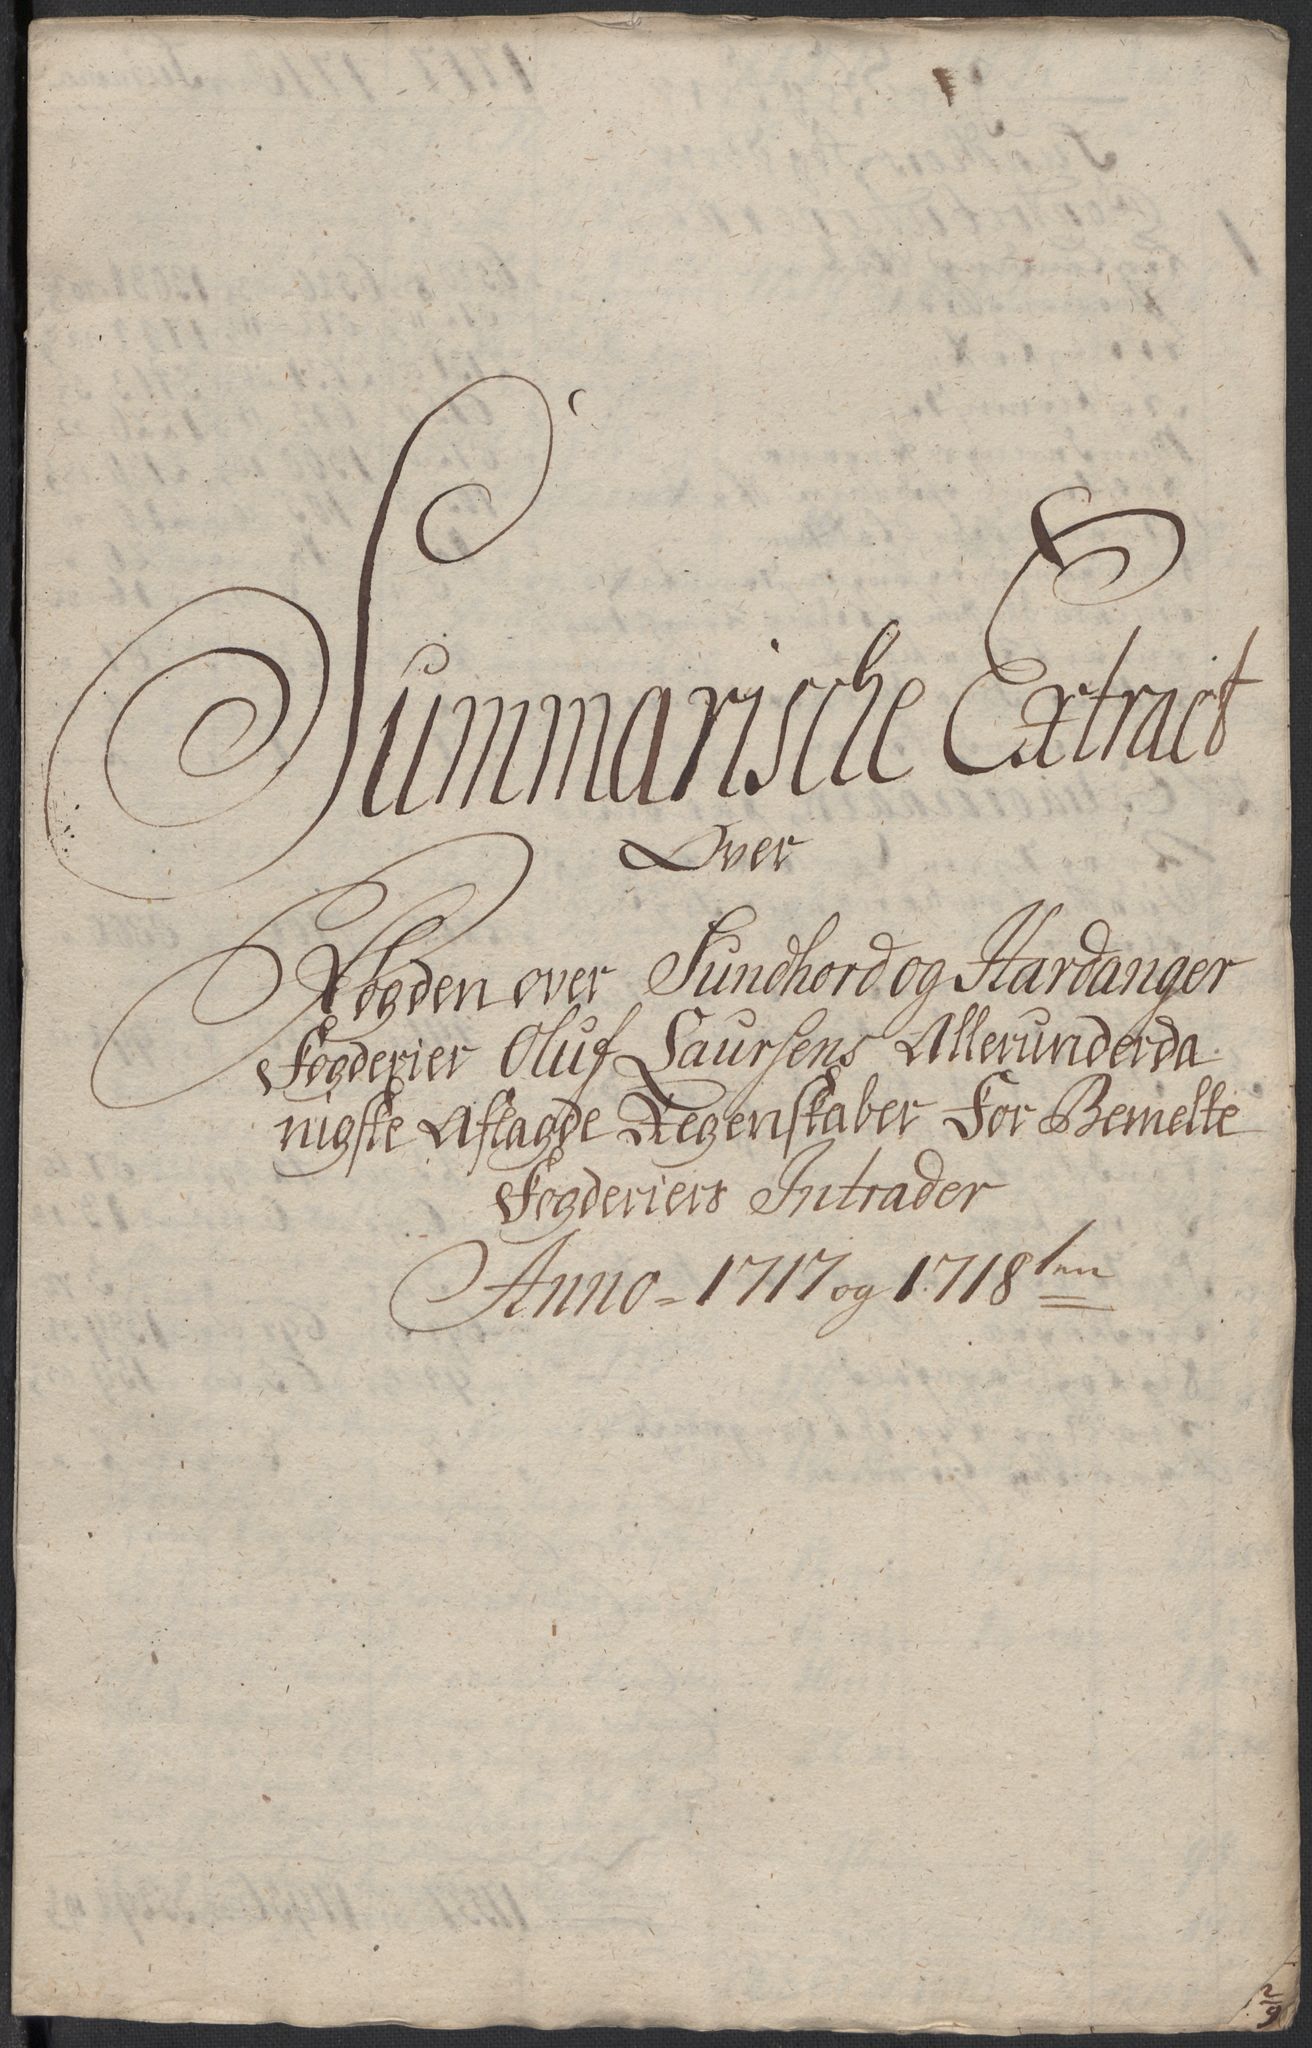 Summarische Extract
Over
Fogden over Sundhord og Hardanger
Fogderier Oluf Laursens Allerunderda
nigste Aflagde Regenskaber For Bemelte
Fogderiers Intrader
Anno - 1717 og 1718
2
9